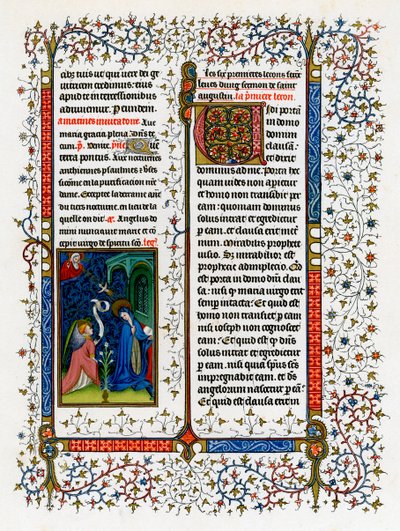 abs tuis ut qui vere dei ge
nitricem credimus: eius
apud te intercessionibus
adiuuemur. p eundem.
a matines inuitatoire. Aue
maria gracia plena: dñs te
cum. p̄. Venite.
terra pontus. Aux nocturnes
anthiennes psaulmes: ⁊ vers
si come a la purificacion no
dame. Excepte la derraine an
du tiers nocturne. en lieu de la
quelle on dit. añ. Angelus do
mini nunciauit marie et con
cepit virgo de spiritu sc̄o.
Les six premieres leçons sont
leues du sermon de saint
augustin. la p̄miere leçon.
In porta
in domo
domini
clausa:
et dixit
dominus ad me. Porta hec
quam uides non aperietur
et homo non transibit per
eam: quoniam dominus
solus intrat et egreditur
p eam. et clausa erit mich
eum. Mirabilis prophete
uisio. Sed mirabilior est
prophetie adimpletio. Quid
est porta in domo dñi clau
sa: nisi q̄ maria virgo erit
semp intacta: Et quid est
homo non transiet p eam
nisi ioseph non cognoscet
eam: Et quid est q̄ dñs
solus intrat et egreditur
p eam. nisi quia spūs sc̄s
impregnabit eam. et dñs
angelorum nascetur p eā:
Et quid est clausa erit in